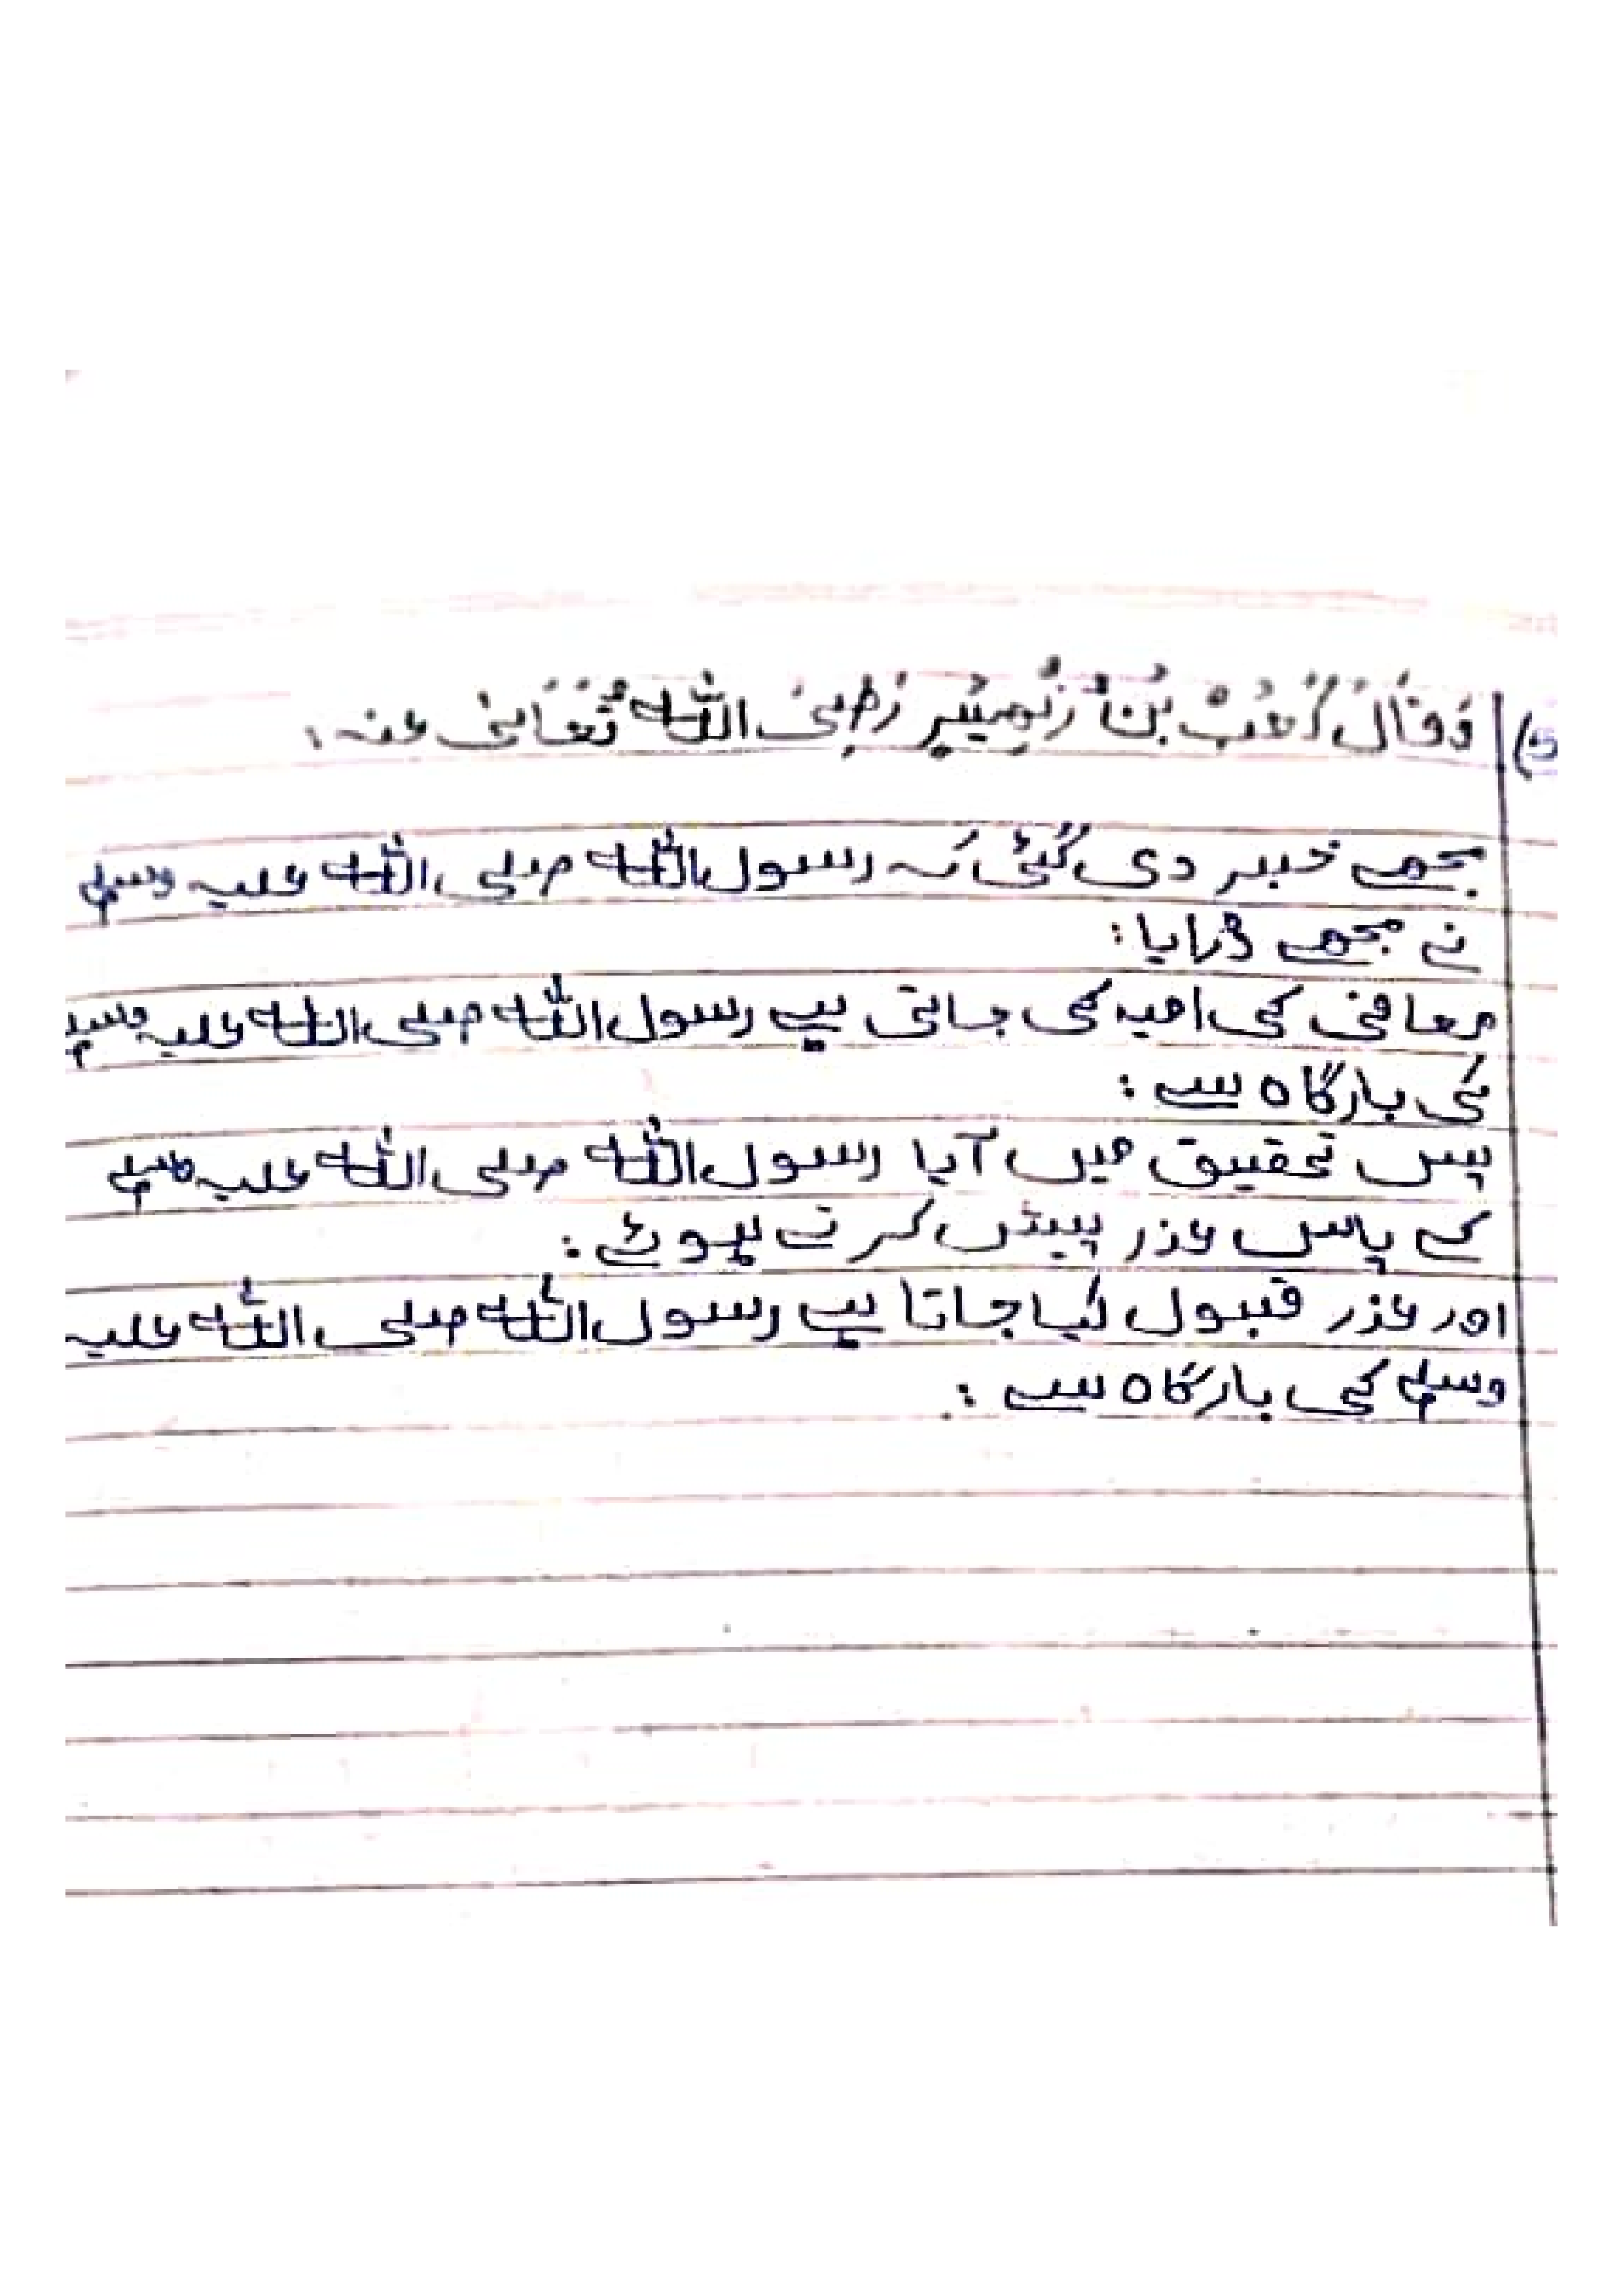 وَقَالَ کَعْبُ بْنُ زُہَیْرٍ رَضِیَ اللّٰہُ تَعَالیٰ عنہ:
مجھے خبر دی گئی کہ رسول اللّٰہ صلی اللّٰہ علیہ وسلم
نے مجھے ڈرایا:
معافی کی امید کی جاتی ہے رسول اللّٰہ صلی اللّٰہ علیہ وسلم
کی بارگاہ سے:
پس تحقیق میں آیا رسول اللّٰہ صلی اللّٰہ علیہ وسلم
کے پاس عذر پیش کرتے ہوئے:
اور عذر قبول کیا جاتا ہے رسول اللّٰہ صلی اللّٰہ علیہ
وسلم کی بارگاہ سے: